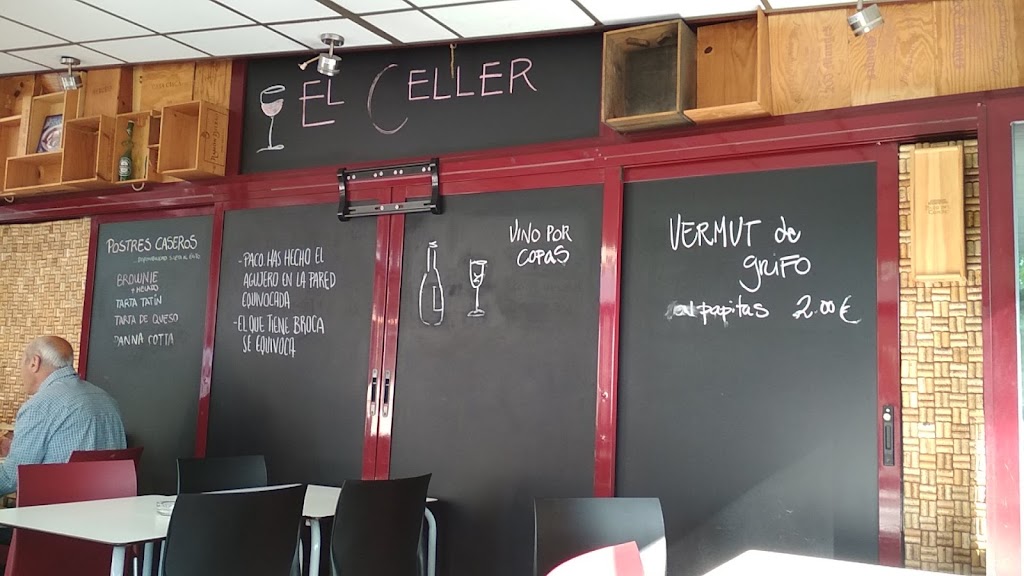 EL CELLER
POSTRES CASEROS
BROWNIE
+ HELADO
TARTA TATÍN
TARTA DE QUESO
PANNA COTTA
-PACO HAS HECHO EL
AGUJERO EN LA PARED
EQUIVOCADA
-EL QUE TIENE BROCA
SE EQUIVOCA
VINO POR
COPAS
VERMUT de
grifo
papitas 2.00 €